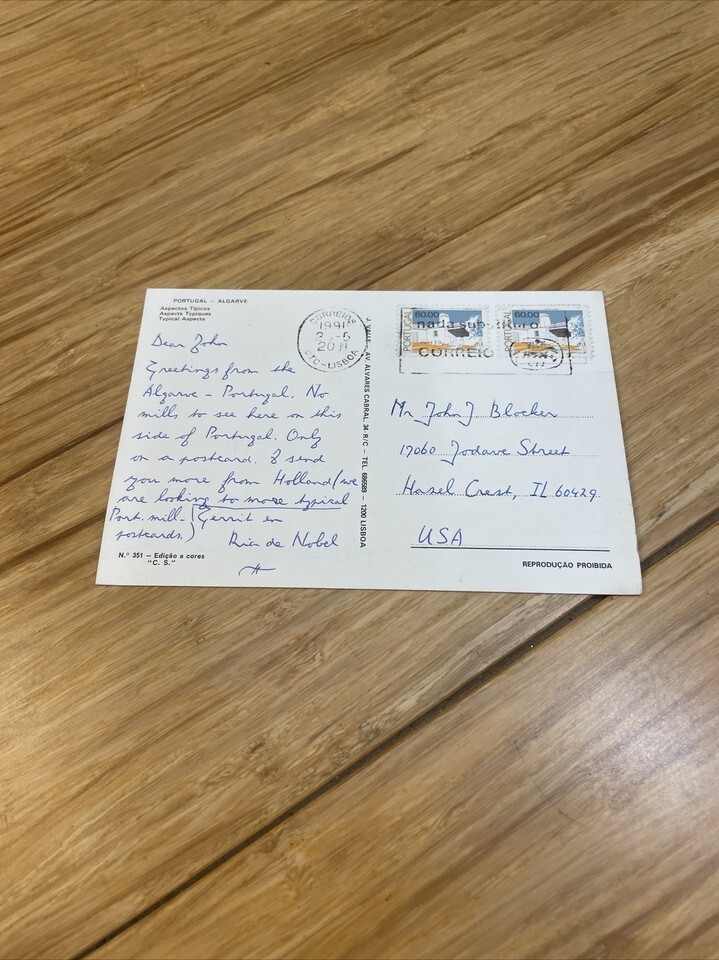 PORTUGAL — ALGARVE
Aspectos Típicos
Aspects Typiques
Typical Aspects
Dear John
Greetings from the
Algarve - Portugal. No
mills to see here on this
side of Portugal. Only
on a postcard. I send
you more from Holland (we
are looking to more typical
Port. mill- Gerrit en
postcards.) Ria de Nobel
N.º 351 — Edição a cores
"C. S."
CORREIOS
1991
20 H
CTC-LISBOA
AV. ÁLVARES CABRAL, 34-R/C — TEL. 686589 — 1200 LISBOA
PORTUGAL 60.00
PORTUGAL 60.00
nada
CORREIO
Mr John J. Blocker
17060 Jodave Street
Hasel Crest, IL 60429
USA
REPRODUÇÃO PROIBIDA